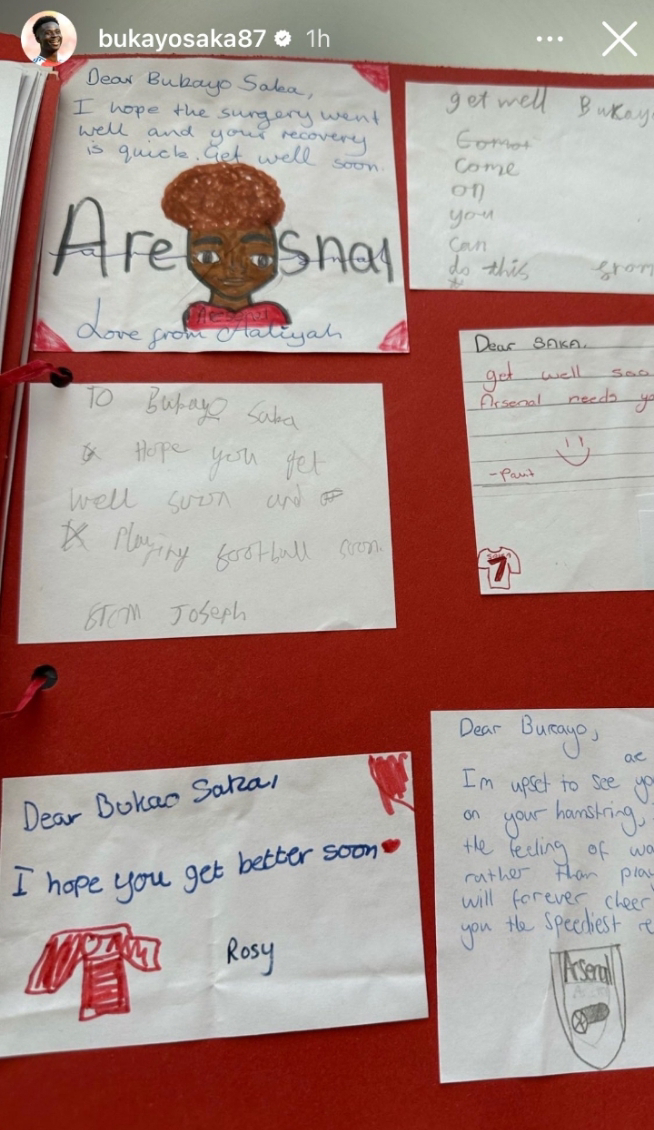 bukayosaka87 1h
Dear Bukayo Saka,
I hope the surgery went
well and your recovery
is quick. Get well soon.
Aresnal
Aresnal
Love from Aaliyah
get well Bukay
Come
on
you
can
do this from
TO Bubayo Saka
Hope you get
well soon and
Playing football soon.
from Joseph
Dear SAKA.
get well soo
Arsenal needs yo
7
Dear Bukao Saka,
I hope you get better soon
Rosy
Dear Bukayo,
I'm upset to see yo
on your hamstring,
the feeling of wa
rather than play
will forever cheer
you the speediest re
Arsenal